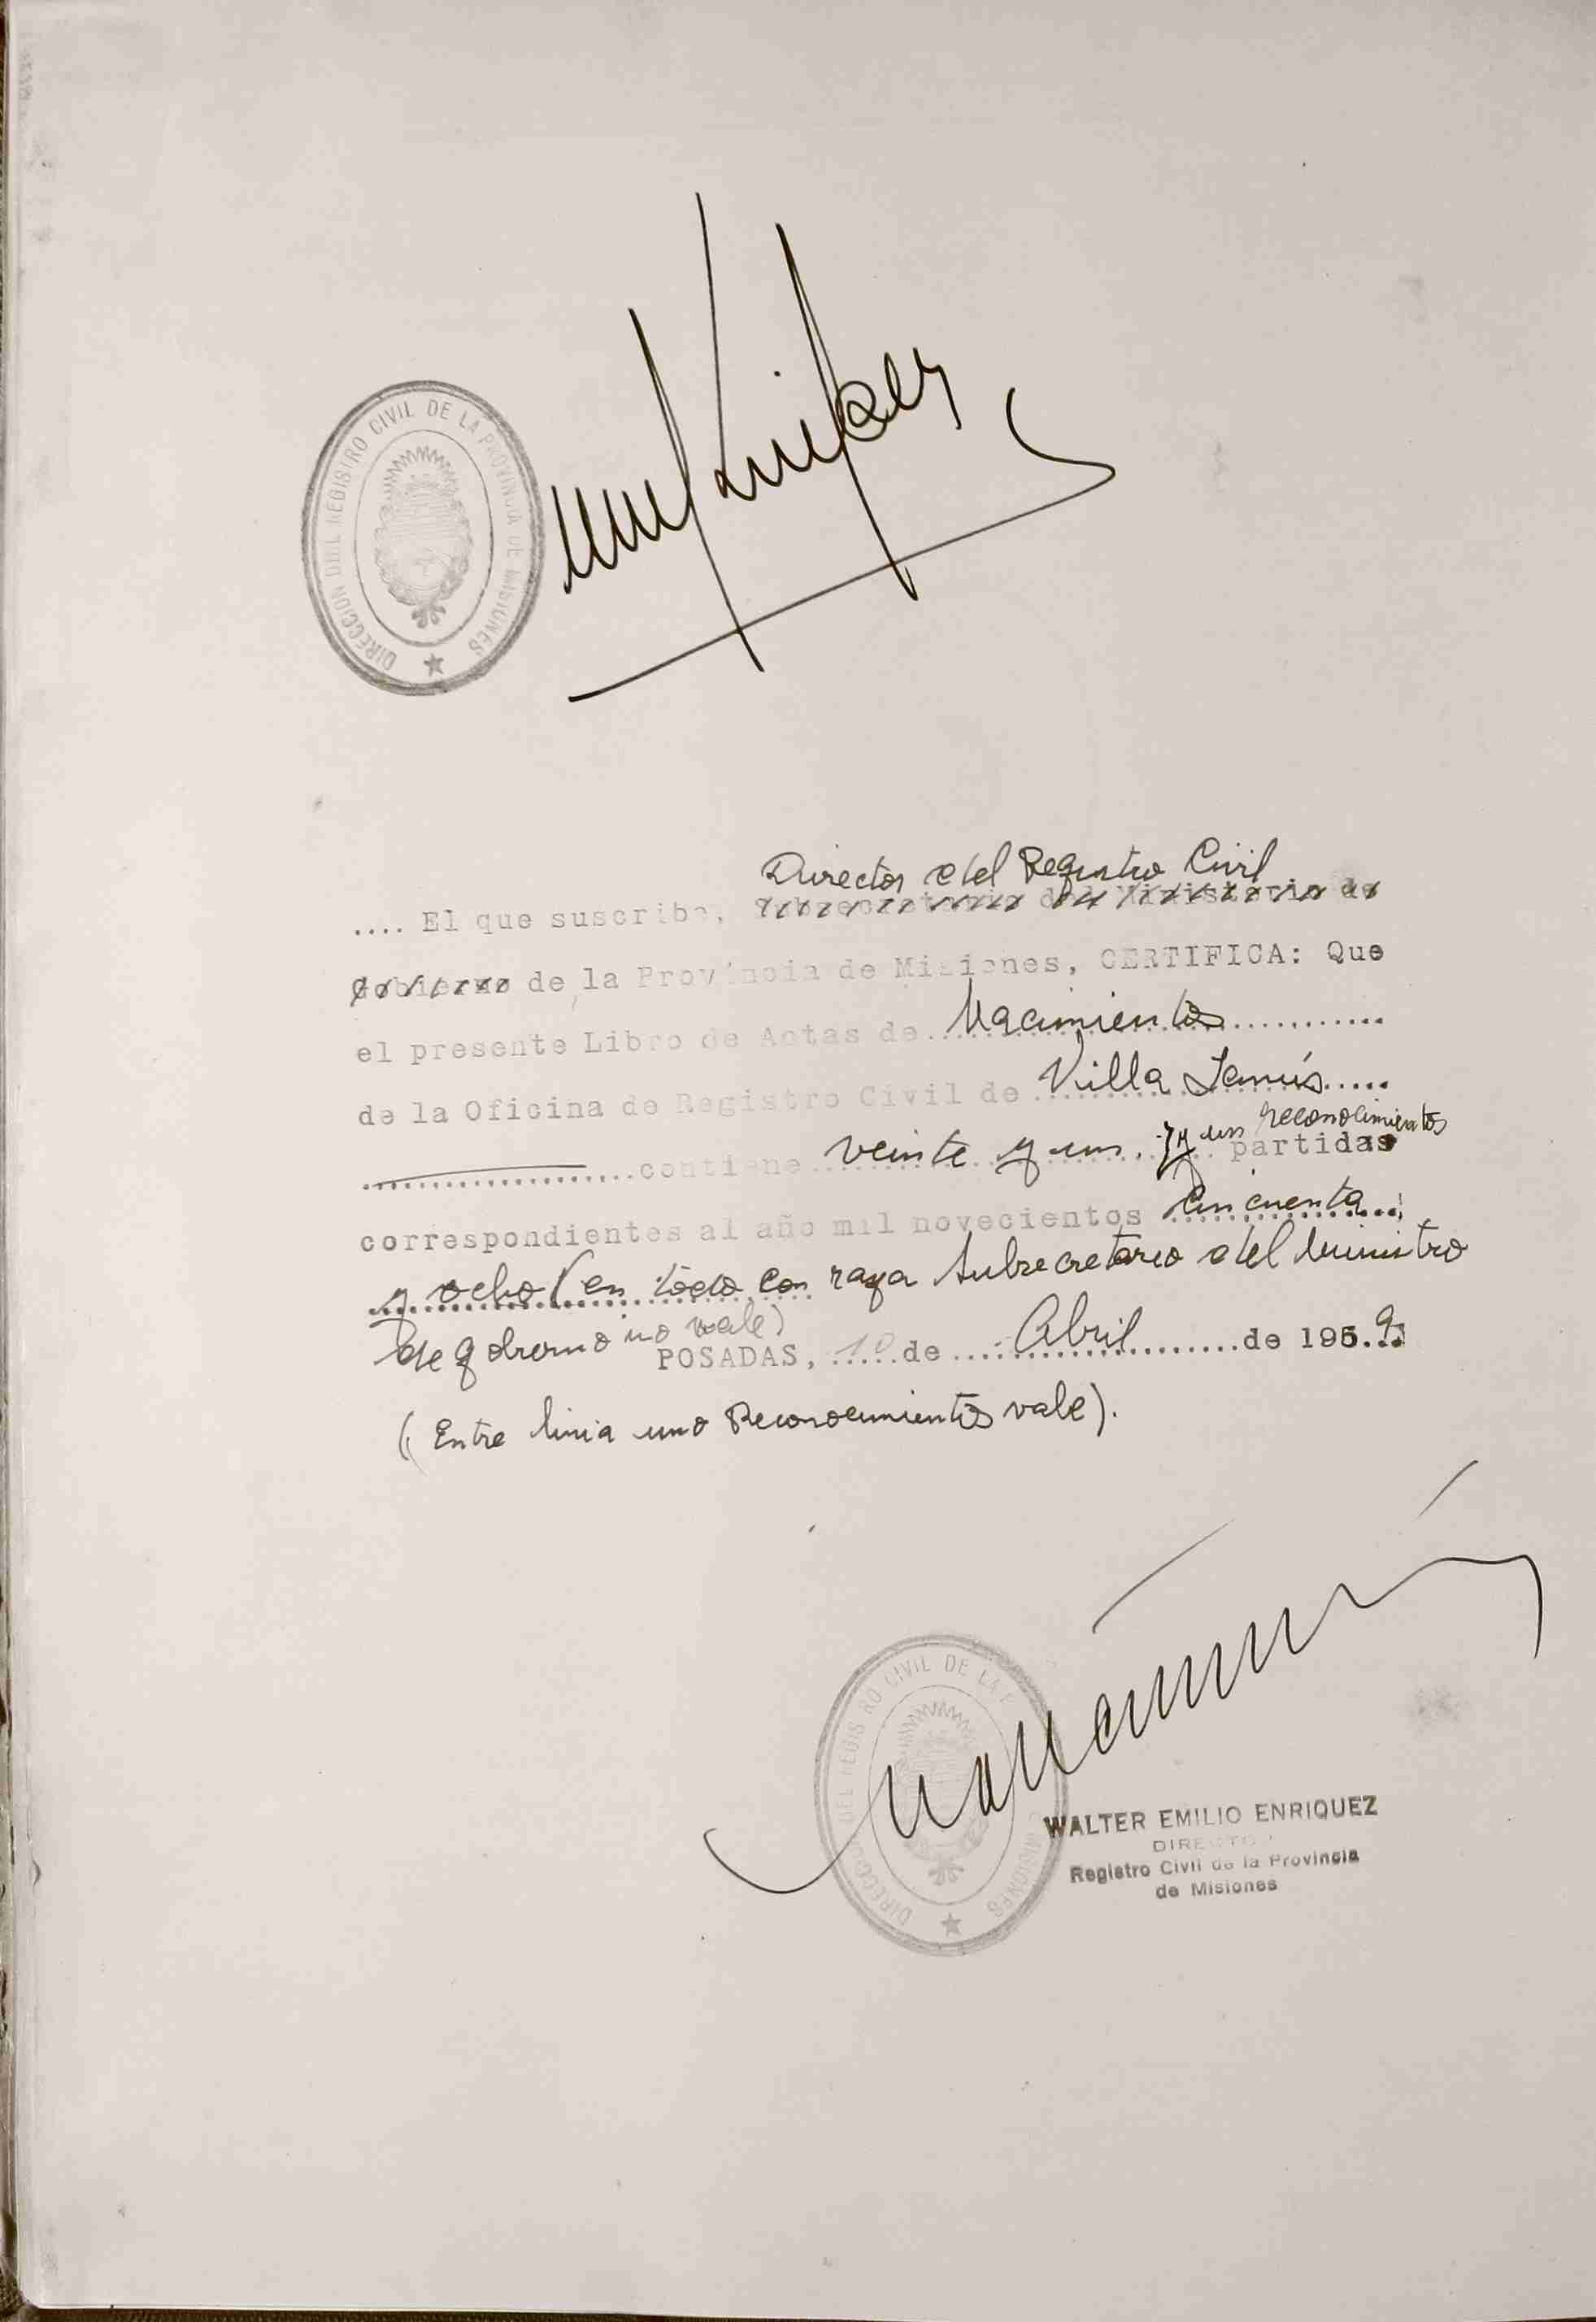 DIRECCION DEL REGISTRO CIVIL DE LA PROVINCIA DE MISIONES
Director del Registro Civil
.... El que suscribe, Subsecretario del Ministerio de
Gobierno de la Provincia de Misiones, CERTIFICA: Que
el presente Libro de Actas de Nacimientos
de la Oficina de Registro Civil de Villa Lanús
y un reconocimientos
contiene veinte y un partidas
correspondientes al año mil novecientos cincuenta
y ocho (en todo con raya Subsecretario del Ministro
de gobierno no vale)
POSADAS, 10 de Abril de 1959
(Entre linia uno Reconocimientos vale).
DIRECCION DEL REGISTRO CIVIL DE LA P MISIONES
WALTER EMILIO ENRIQUEZ
DIRECTOR
Registro Civil de la Provincia
de Misiones